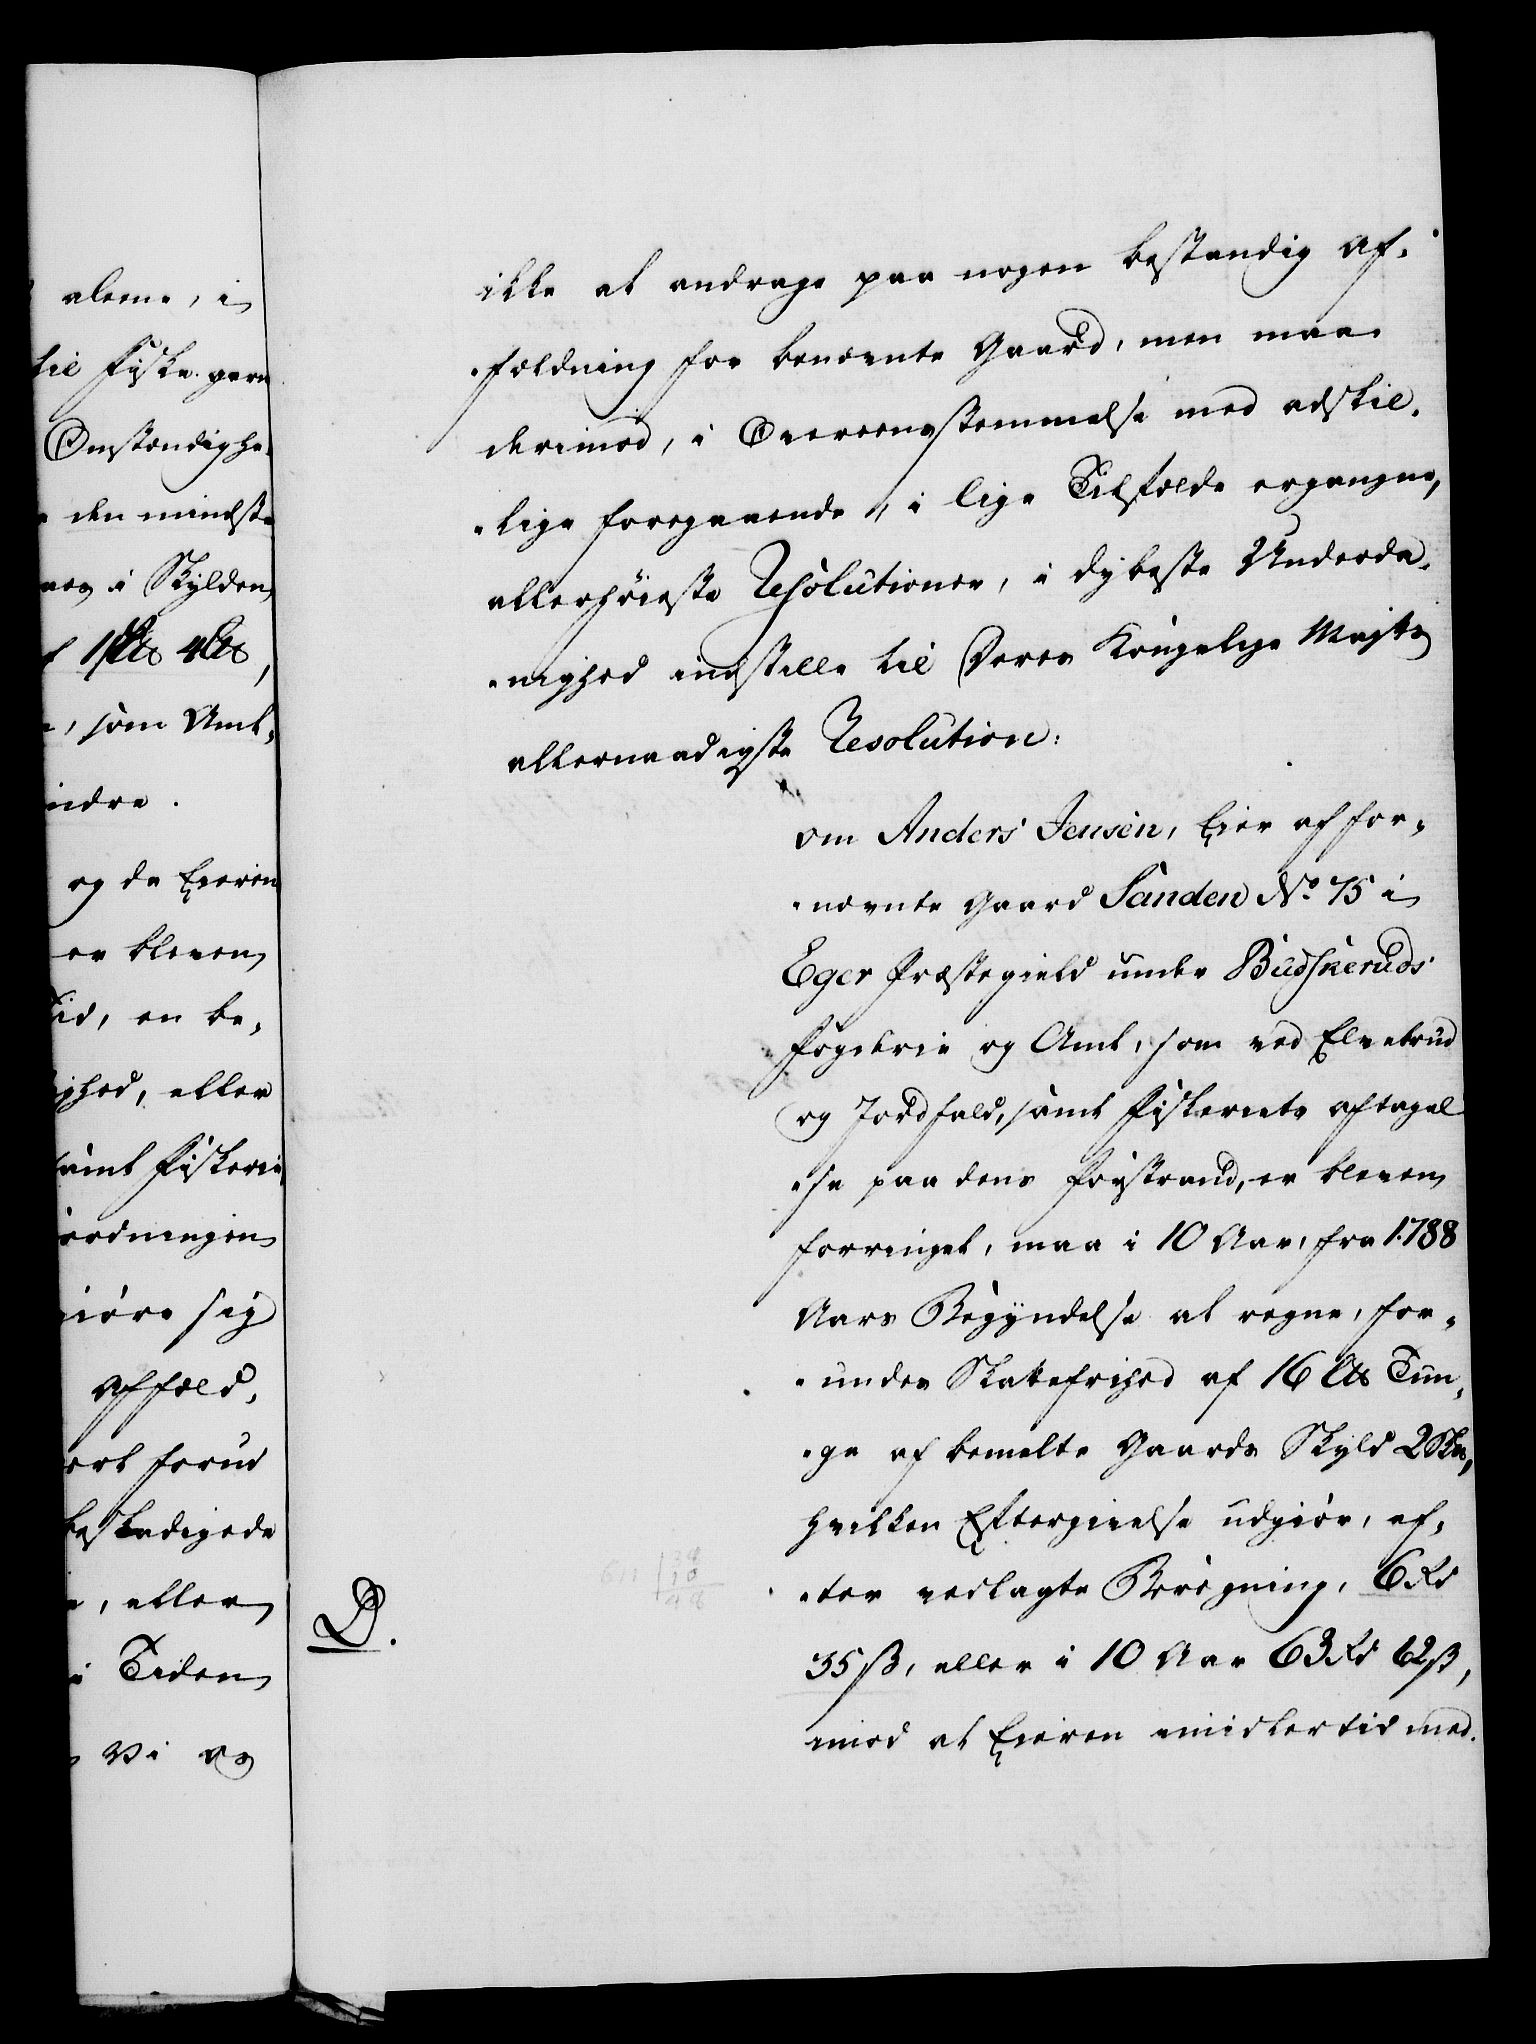 alene, i
til Fiske. gern
Omstændighe„
den mindste
ver i Skylden
1 4,
, som Amt„
indre.
og da Eieren
er bleven
Tid, en be„
ghed, eller
samt Fiskerie
ordningen
giøre sig
Affæld,
ort forud
beskadigede
, eller
i Tiden
Vi os
ikke at andrage paa nogen bestandig Af„
„fældning for benævnte Gaard, men maae
derimod, i Overeensstemmelse med adskil„
„lige foregaaende, i lige Tilfælde ergangne,
allerhöieste Resolutioner, i dybeste Underda„
„nighed indstille til Deres Kongelige Majts
allernaadigste Resolution:
om Anders Jensen, Eier af for„
„nævnte Gaard Sanden No. 75 i
Eger Præstegield under Budskeruds
Fogderie og Amt, som ved Elvebrud
og Jordfald, samt Fiskeriets aftagel
„se paa dens Forstrand, er bleven
forringet, maa i 10 Aar, fra 1788
Aars Begyndelse at regne, for„
„unders Skattefrihed af 16 Lts Tun„
„ge af bemelte Gaards Skyld 2 Skts,
hvilken Eftergivelse udgiør, ef„
„ter vedlagte Beregning, 6 Rd
D.
35 ß, eller i 10 Aar 63 Rd 62 ß,
imod at Eieren imidlertid med„